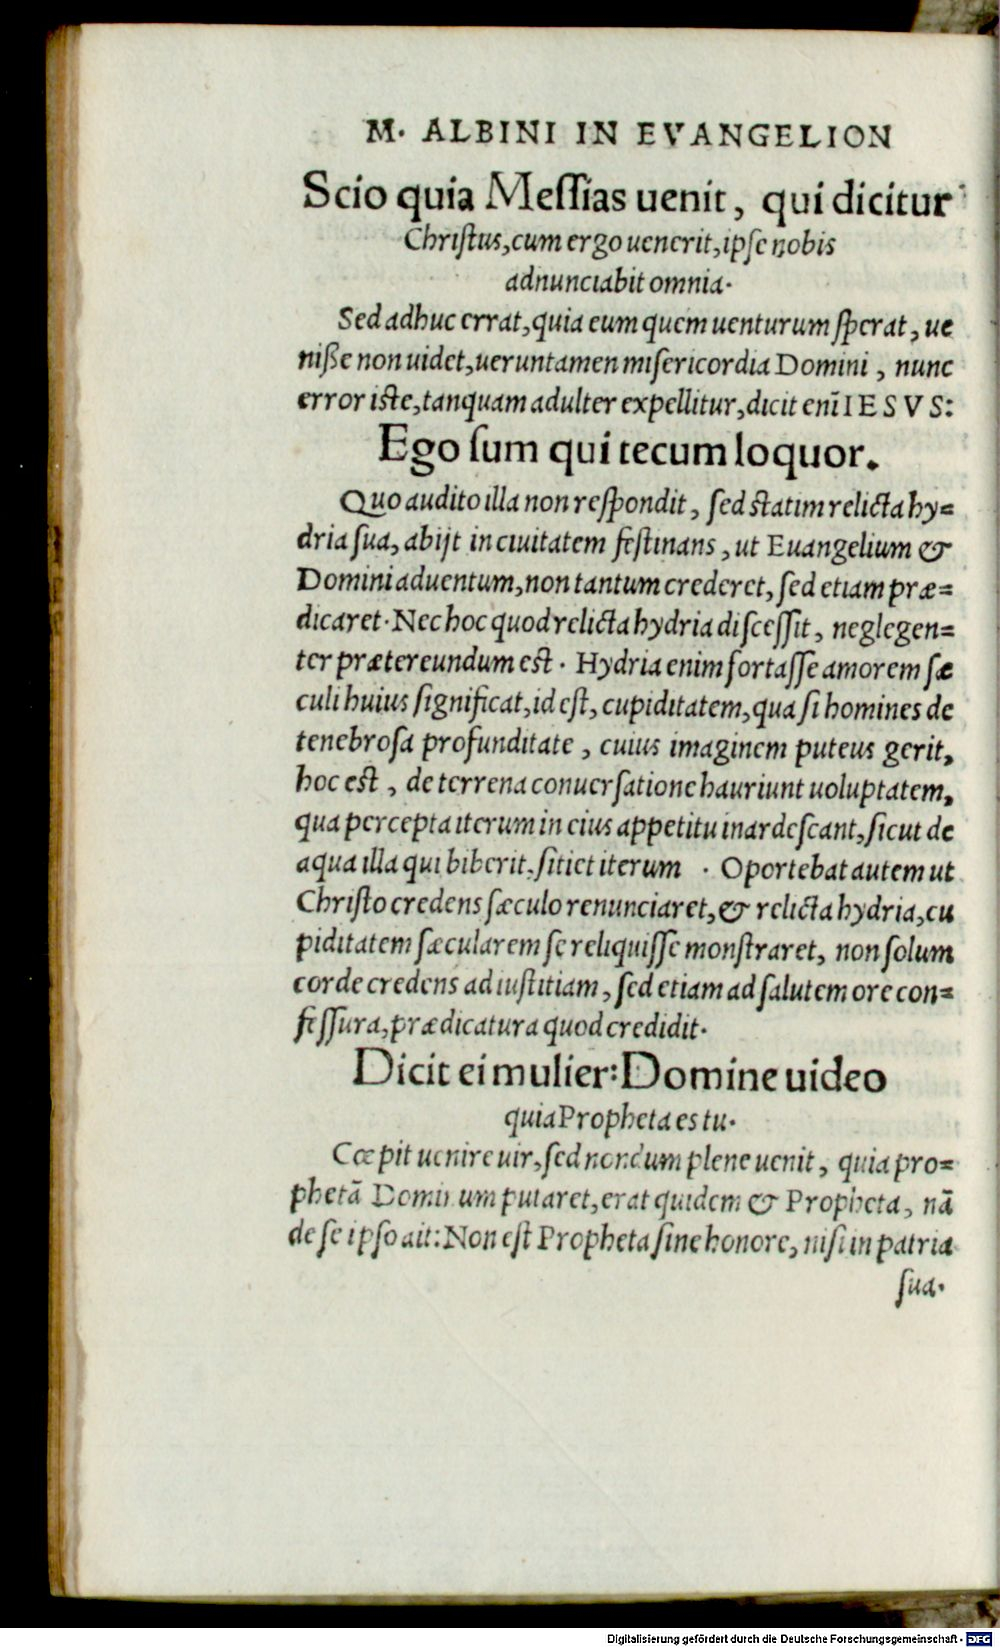 M. ALBINI IN EVANGELION
Scio quia Meſſias uenit, qui dicitur
Chriſtus, cum ergo uenerit, ipſe nobis
adnunciabit omnia.
Sed adhuc errat, quia eum quem uenturum ſperat, ue
niße non uidet, ueruntamen miſericordia Domini, nunc
error iste, tanquam adulter expellitur, dicit enī IESVS:
Ego ſum qui tecum loquor.
Quo audito illa non reſpondit, ſed statim relicta hy=
dria ſua, abijt in ciuitatem feſtinans, ut Euangelium &
Domini aduentum, non tantum crederet, ſed etiam præ=
dicaret. Nec hoc quod relicta hydria diſceſſit, neglegen=
ter prætereundum est. Hydria enim fortaſſe amorem ſæ
culi huius ſignificat, id eſt, cupiditatem, qua ſi homines de
tenebroſa profunditate, cuius imaginem puteus gerit,
hoc est, de terrena conuerſatione hauriunt uoluptatem,
qua percepta iterum in eius appetitu inardeſcant, ſicut de
aqua illa qui biberit, ſitiet iterum. Oportebat autem ut
Chriſto credens ſæculo renunciaret, & relicta hydria, cu
piditatem ſæcularem ſe reliquiſſe monſtraret, non ſolum
corde credens ad iuſtitiam, ſed etiam ad ſalutem ore con=
feſſura, prædicatura quod credidit.
Dicit ei mulier: Domine uideo
quia Propheta es tu.
Cœpit uenire uir, ſed nondum plene uenit, quia pro=
phetā Dominum putaret, erat quidem & Propheta, nā
de ſe ipſo ait: Non eſt Propheta ſine honore, niſi in patria
ſua.
Digitalisierung gefördert durch die Deutsche Forschungsgemeinschaft - DFG